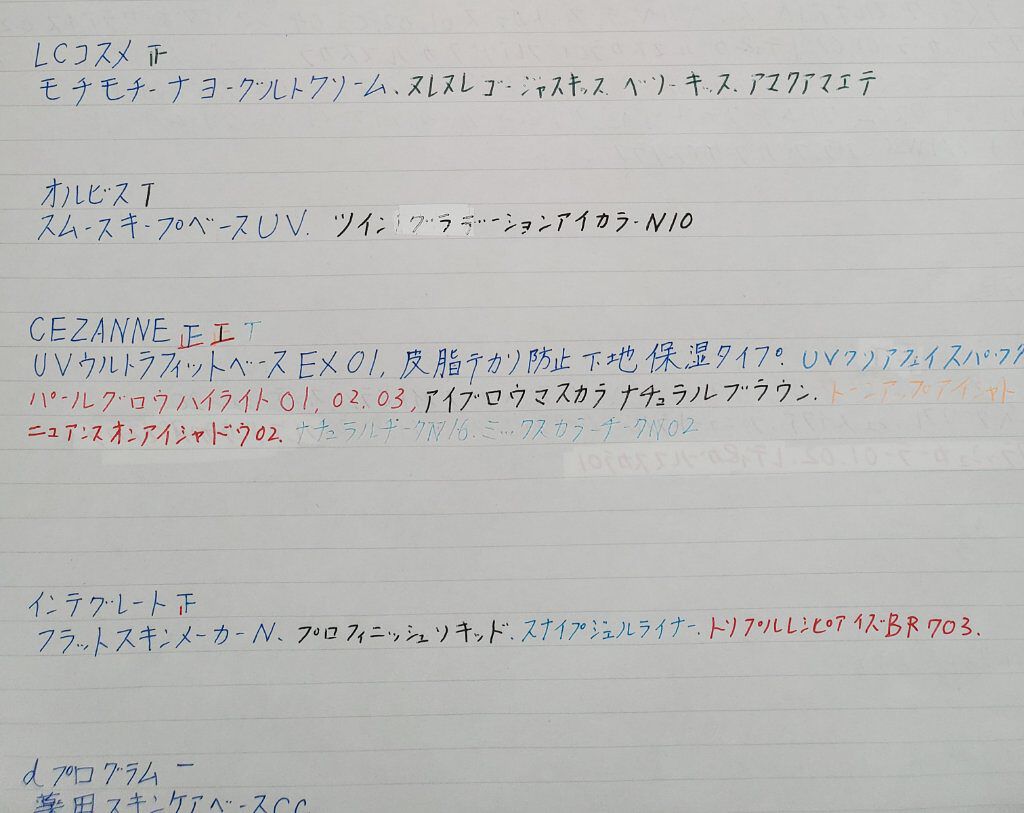 LCコスメ 正
モチモチーナ ヨーグルトクリーム、ヌレヌレ ゴージャスキッス ベリーキッス、アマクアマエテ
オルビス T
スムースキープベースUV. ツイングラデーションアイカラーN10
CEZANNE 正 正 T
UVウルトラフィットベースEX01, 皮脂テカリ防止下地 保湿タイプ. UVクリアフェイスパウダ
パールグロウハイライト01, 02.03, アイブロウマスカラ ナチュラルブラウン. トーンアップアイシャド
ニュアンスオンアイシャドウ02. ナチュラルチークN16. ミックスカラーチークN02
インテグレート 正
フラットスキンメーカーN、プロフィニッシュリキッド. スナイプジェルライナー. トリプルレシピアイズBR703.
dプログラム 一
薬用スキンケアベースCC